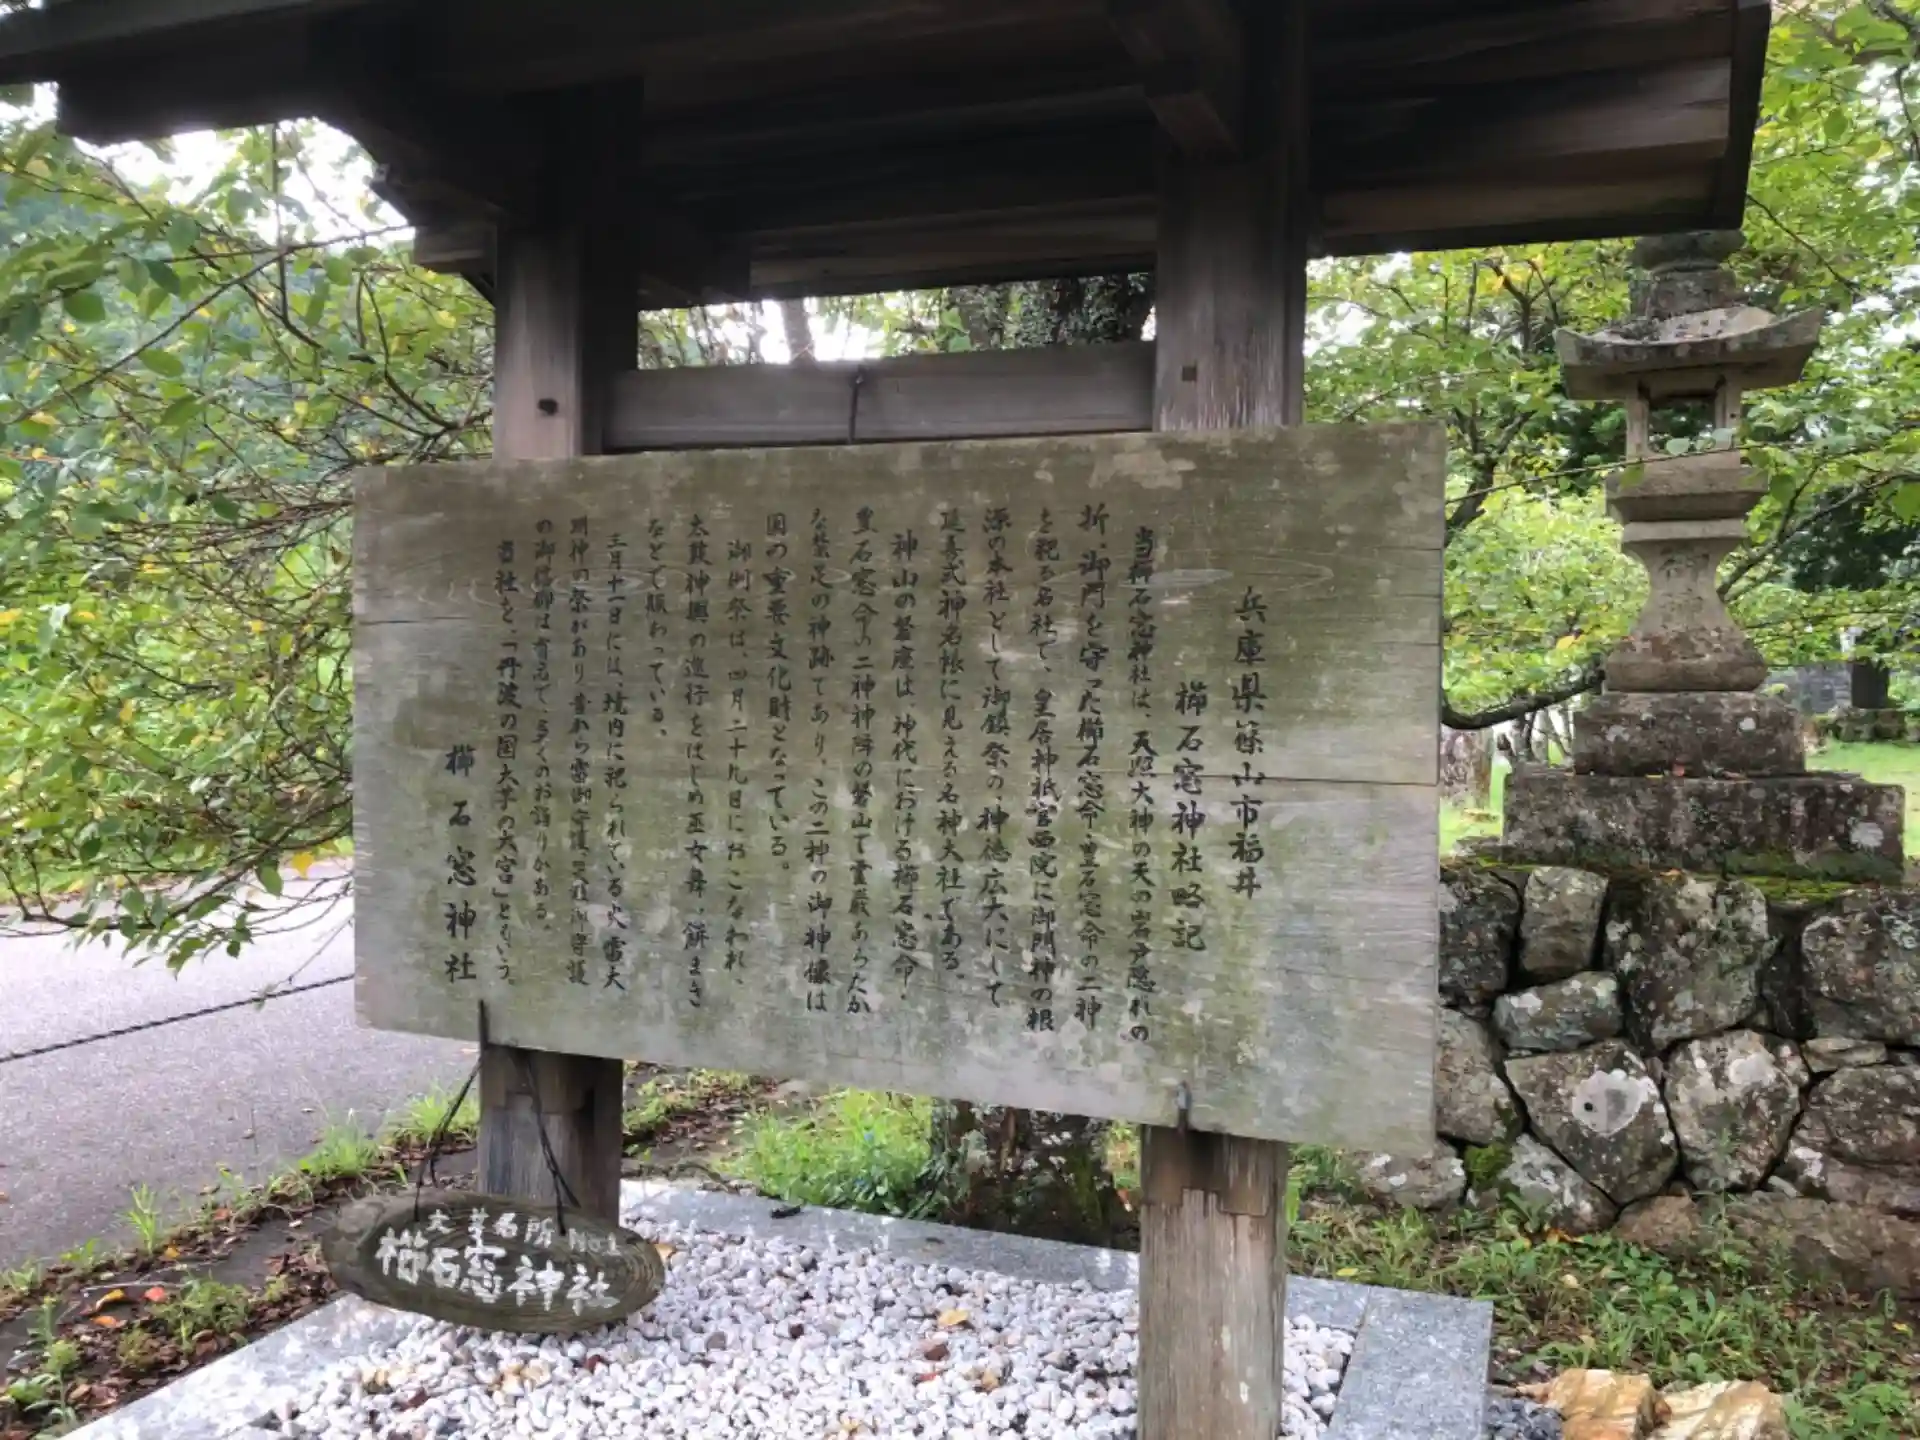 兵庫県篠山市福井
櫛石窓神社略記
当櫛石窓神社は、天照大神の天の岩戸隠れの
折、御門を守った櫛石窓命・豊石窓命の二神
を祀る名社で、皇居神祇官西院に御門神の根
源の本社として御鎮祭の、神徳広大にして
延喜式神名帳に見える名神大社である。
神山の磐座は、神代における櫛石窓命・
豊石窓命の二神神降の磐山で霊厳あらたか
な禁足の神跡であり、この二神の御神像は
国の重要文化財となっている。
御例祭は、四月二十九日におこなわれ、
太鼓神輿の進行をはじめ巫女舞、餅まき
などで賑わっている。
三月十一日には、境内に祀られている火雷天
明神の祭があり昔から雷御守護災難御守護
の御信仰は有名で、多くのお詣りがある。
当社を、「丹波の国大芋の大宮」ともいう。
櫛石窓神社
大芋名所 No.1
櫛石窓神社
御神